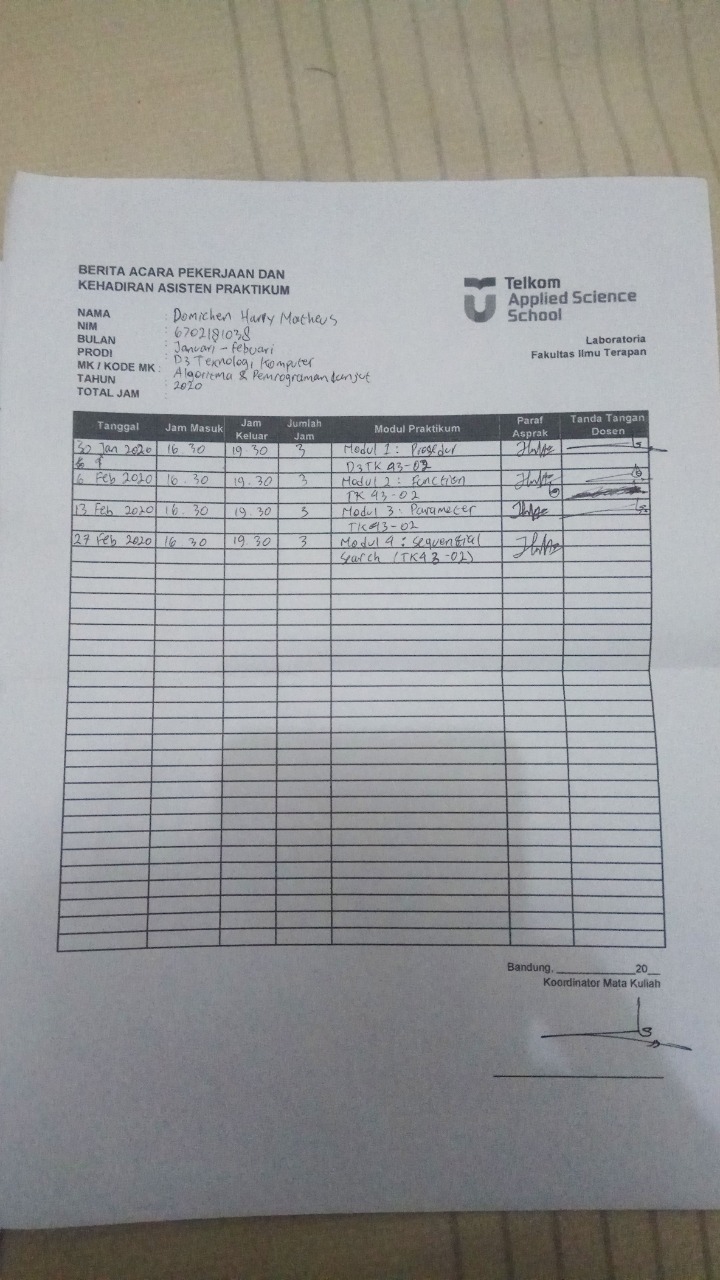 BERITA ACARA PEKERJAAN DAN
KEHADIRAN ASISTEN PRAKTIKUM
Telkom
Applied Science
School
Laboratoria
Fakultas Ilmu Terapan
NAMA : Domichen Harry Matheus
NIM : 6702181038
BULAN : Januari - Febuari
PRODI : D3 Teknologi Komputer
MK / KODE MK : Algoritma & Pemrograman Lanjut
TAHUN : 2020
TOTAL JAM :
Tanggal Jam Masuk Jam Keluar Jumlah Jam Modul Praktikum Paraf Asprak Tanda Tangan Dosen
30 Jan 2020 16.30 19.30 3 Modul 1 : Prosedur
D3TK 43-02
6 Feb 2020 16.30 19.30 3 Modul 2 : Function
TK 43-02
13 Feb 2020 16.30 19.30 3 Modul 3 : Parameter
TK43-02
27 Feb 2020 16.30 19.30 3 Modul 4 : Sequential
Search (TK43-02)
Bandung, ____________20__
Koordinator Mata Kuliah